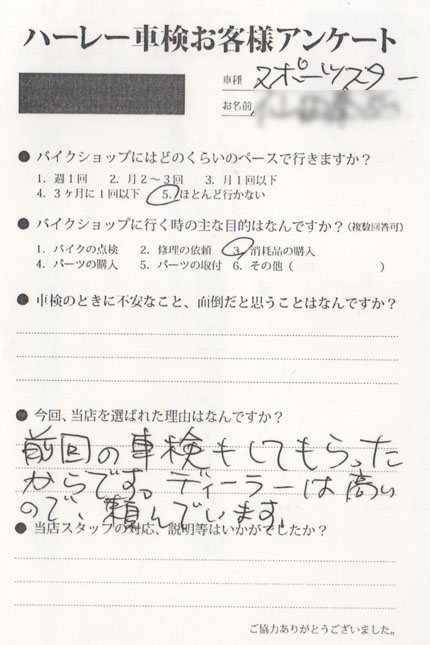 ハーレー車検お客様アンケート
車種 スポーツスター
お名前
● バイクショップにはどのくらいのペースで行きますか？
1. 週1回 2. 月2～3回 3. 月1回以下
4. 3ヶ月に1回以下 5. ほとんど行かない
● バイクショップに行く時の主な目的はなんですか？(複数回答可)
1. バイクの点検 2. 修理の依頼 3. 消耗品の購入
4. パーツの購入 5. パーツの取付 6. その他 ( )
● 車検のときに不安なこと、面倒だと思うことはなんですか？
● 今回、当店を選ばれた理由はなんですか？
前回の車検もしてもらった
からです。ディーラーは高い
ので、頼んでいます。
● 当店スタッフの対応、説明等はいかがでしたか？
ご協力ありがとうございました。